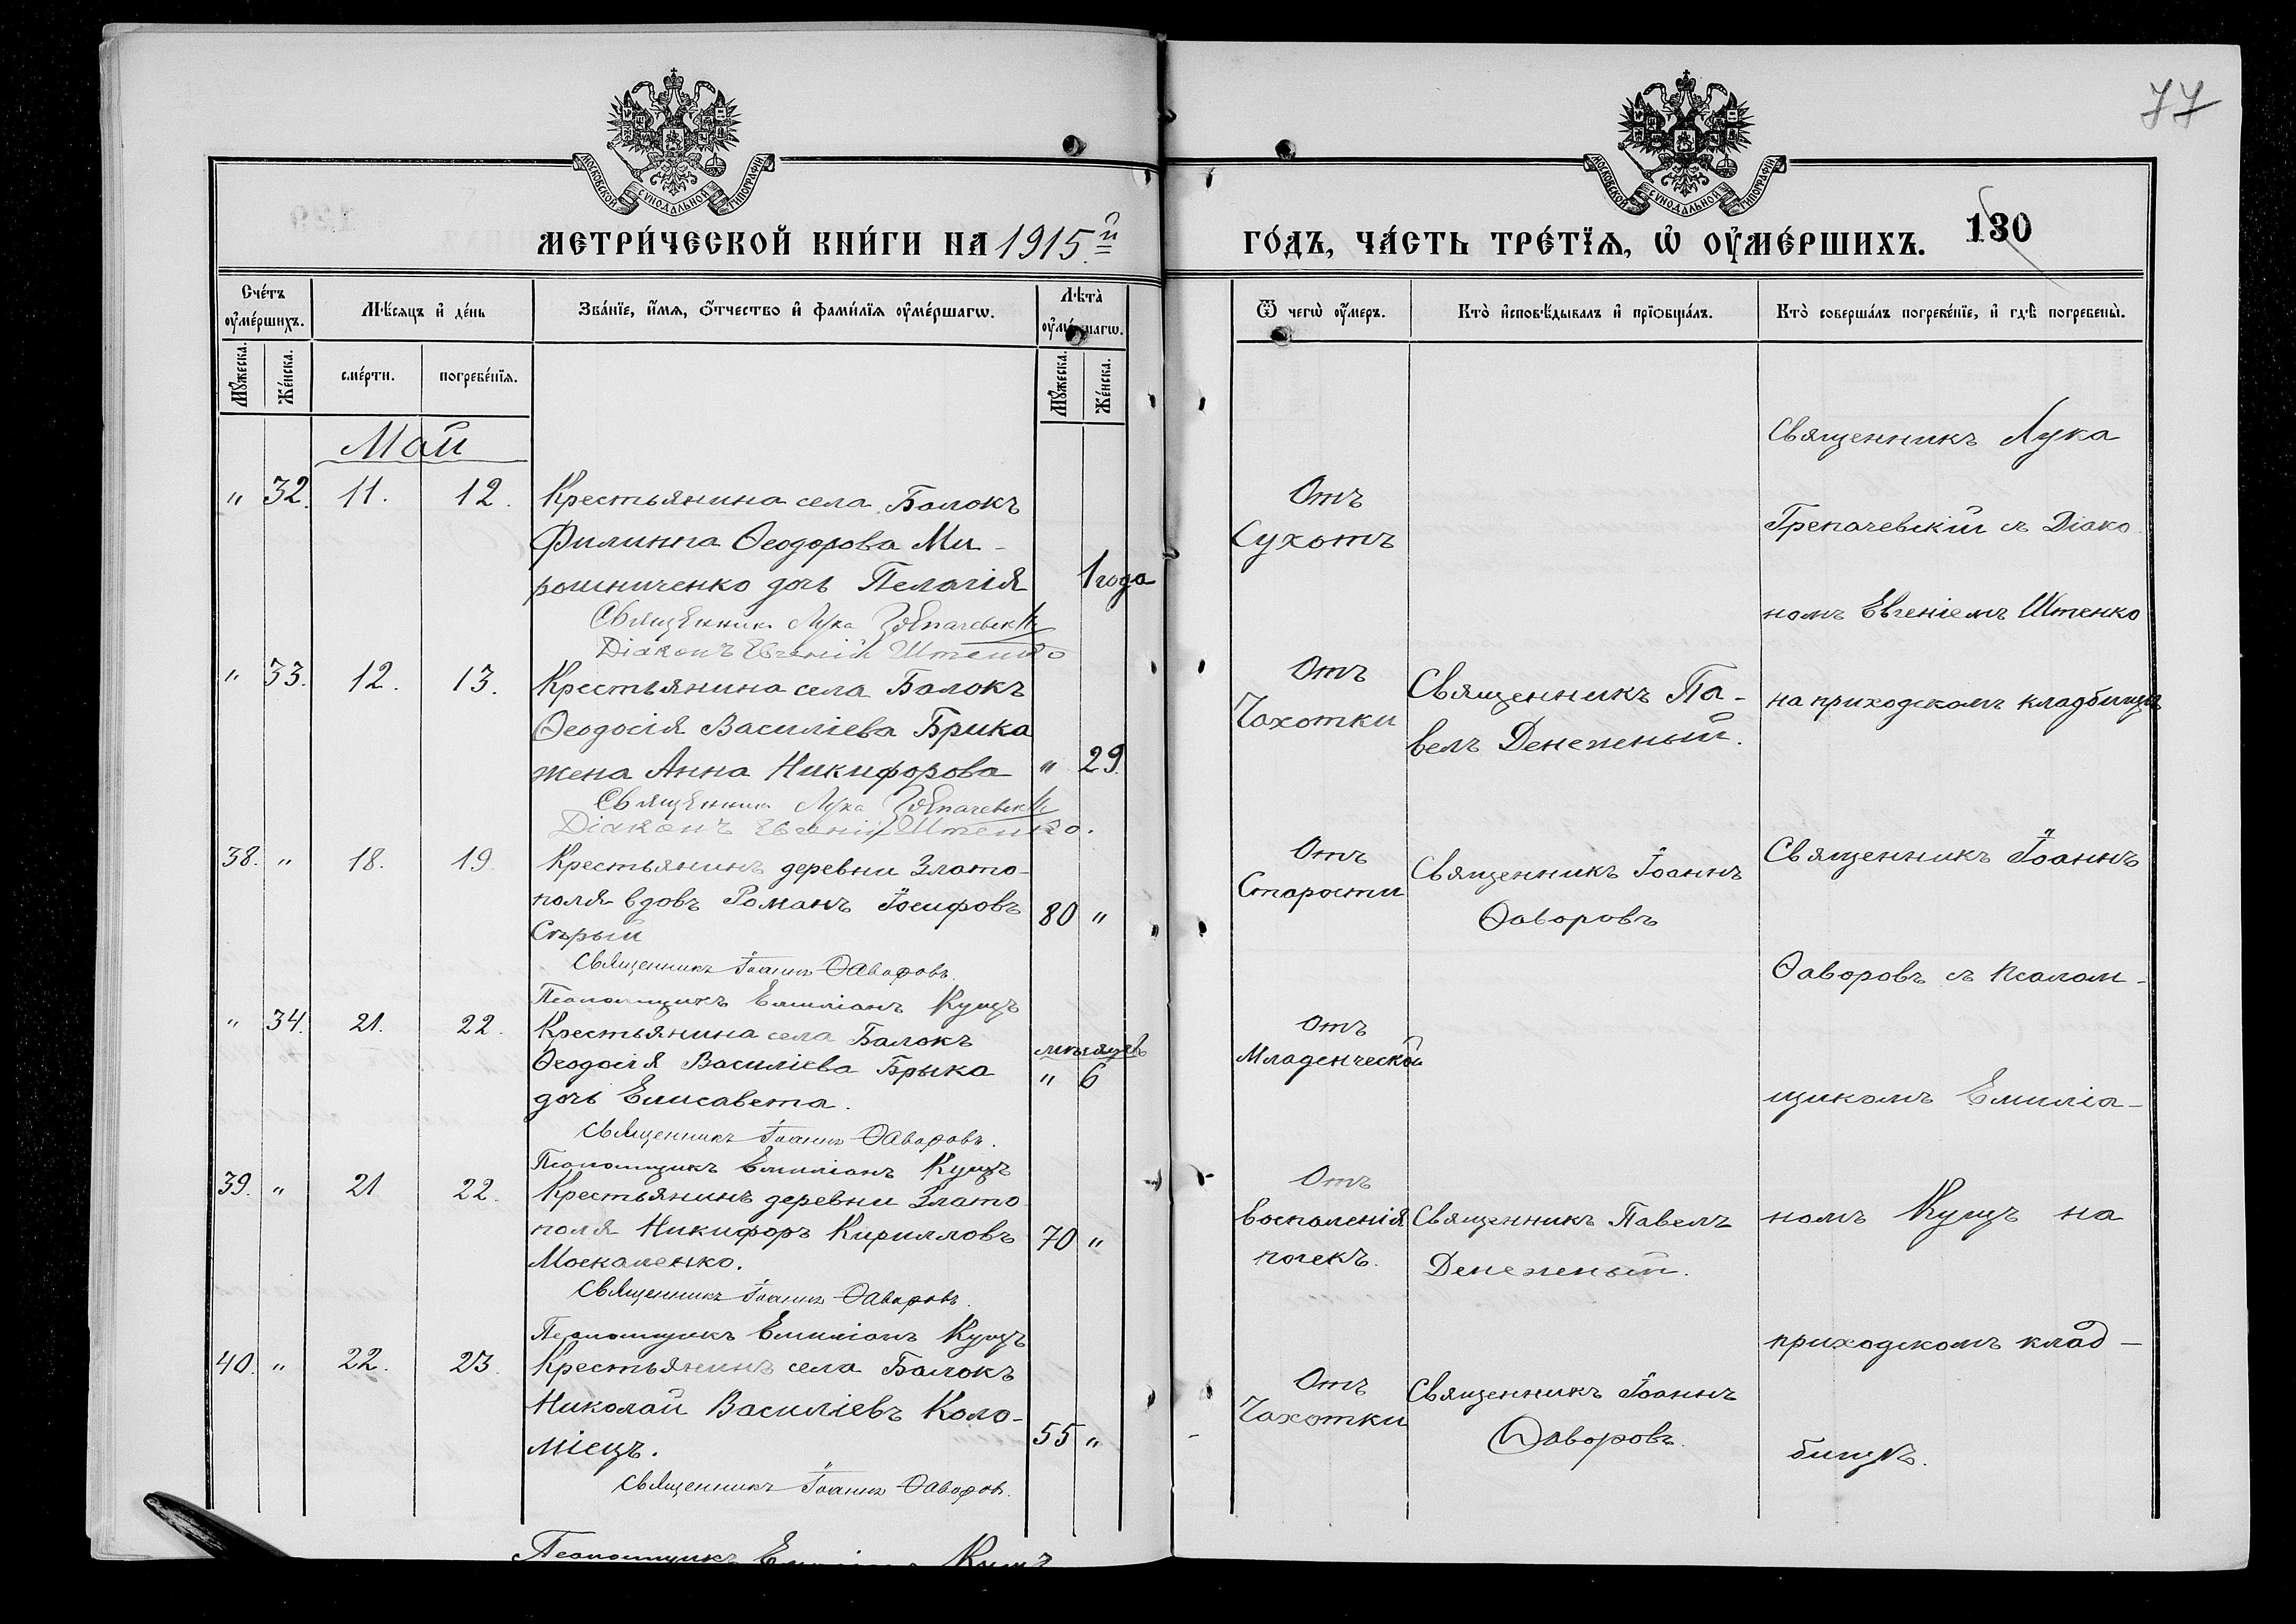 77
МОСКОВСКОЙ СѴНОДАЛЬНОЙ ТИПОГРАФІИ
МОСКОВСКОЙ СѴНОДАЛЬНОЙ ТИПОГРАФІИ
МЕТРИ́ЧЕСКОЙ КНИ́ГИ НА 1915.й
ГО́ДЪ, ЧА́СТЬ ТРЕ́ТЇѦ, Ѡ҆ ОУ҆МЕ́РШИХЪ. 130
Сче́тъ оу҆ме́ршихъ.
Мꙋ́жеска. Же́нска.
Мѣ́сяцъ и҆ де́нь
сме́рти. погребе́нїѧ.
Зва́нїе, и҆́мѧ, о҆́тчество и҆ фами́лїѧ оу҆ме́ршагѡ.
Лѣта̀ оу҆ме́ршагѡ.
Мꙋ́жеска. Же́нска.
Ѿ чегѡ̀ оу҆́меръ.
Кто̀ и҆сповѣ́дывалъ и҆ прїѡбща́лъ.
Кто̀ соверша́лъ погребе́нїе, и҆ гдѣ̀ погребены̀.
Май
" 32. 11. 12. Крестьянина села Балокъ
Филиппа Ѳеодорова Ми-
рошниченко дочь Пелагія 1 года
Священникъ Лука Грепачевскій
Діаконъ Евгеній Штенко
Отъ
Сухотъ
Священникъ Лука
Грепачевскій съ Діако
номъ Евгеніемъ Штенко
на приходскомъ кладбищѣ
" 33. 12. 13. Крестьянина села Балокъ
Ѳеодосія Василіева Брика
жена Анна Никифорова " 29.
Священникъ Лука Грепачевскій
Діаконъ Евгеній Штенко.
Отъ
Чахотки
Священникъ Па-
велъ Денеженый.
38. " 18. 19. Крестьянинъ деревни Злато-
поля вдовъ Романъ Іосифовъ 80 "
Сѣрый
Священникъ Іоаннъ Ѳаворовъ.
Псаломщикъ Емиліанъ Кущъ
Отъ
Старости
Священникъ Іоаннъ
Ѳаворовъ
Священникъ Іоаннъ
Ѳаворовъ съ псалом-
щикомъ Емиліа-
номъ Кущъ на
приходскомъ клад-
бищѣ.
" 34. 21. 22. Крестьянина села Балокъ
Ѳеодосія Василіева Брыка мѣсяцевъ
дочь Елисавета. " 6
Священникъ Іоаннъ Ѳаворовъ.
Псаломщикъ Емиліанъ Кущъ
Отъ
Младенческой
39. " 21 22. Крестьянинъ деревни Злато
поля Никифоръ Кирилловъ 70 "
Москаленко.
Священникъ Іоаннъ Ѳаворовъ.
Псаломщикъ Емиліанъ Кущъ
Отъ
воспаленія
почекъ.
Священникъ Павелъ
Денеженый.
40. " 22. 23. Крестьянинъ села Балокъ
Николай Василіевъ Коло-
міецъ. 55 "
Священникъ Іоаннъ Ѳаворовъ.
Псаломщикъ Емиліанъ Кущъ
Отъ
Чахотки
Священникъ Іоаннъ
Ѳаворовъ.